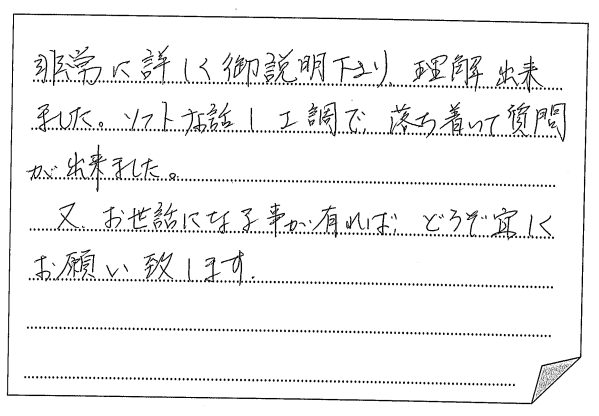 非常に詳しく御説明下さり、理解出来
ました。ソフトな話し口調で、落ち着いて質問
が出来ました。
又、お世話になる事が有れば、どうぞ宜しく
お願い致します。